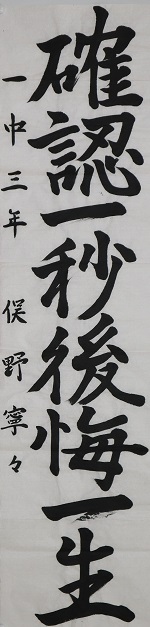 確認一秒後悔一生
一中三年 俣野寧々